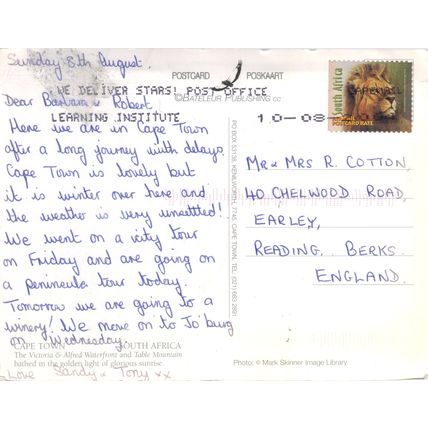 Sunday 8th August.
POSTCARD POSKAART
WE DELIVER STARS! POST OFFICE
©BATELEUR PUBLISHING CC
LEARNING INSTITUTE
Dear Barbara & Robert
Here we are in Cape Town
after a long journey with delays.
Cape Town is lovely but
it is winter over here and
the weather is very unsettled!
We went on a city tour
on Friday and are going on
a peninsula tour today.
Tomorrow we are going to a
winery! We move on to Jo'burg
on Wednesday.
Love Sandy & Tony xx
CAPE TOWN SOUTH AFRICA
The Victoria & Alfred Waterfront and Table Mountain
bathed in the golden light of glorious sunrise.
PO BOX 53138, KENILWORTH, 7745, CAPE TOWN, TEL (021) 683 2891
South Africa
POSTCARD RATE
CAPEMAIL
10-08-
MR & MRS R. COTTON,
40 CHELWOOD ROAD,
EARLEY,
READING, BERKS.
ENGLAND.
Photo: © Mark Skinner Image Library